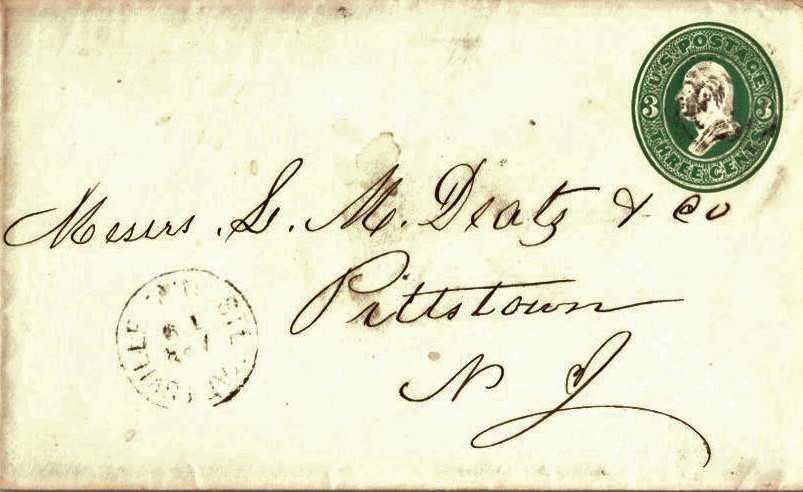 U.S. POSTAGE
3 3
THREE CENTS
Messrs. L. M. Deats & Co
Pittstown
N J